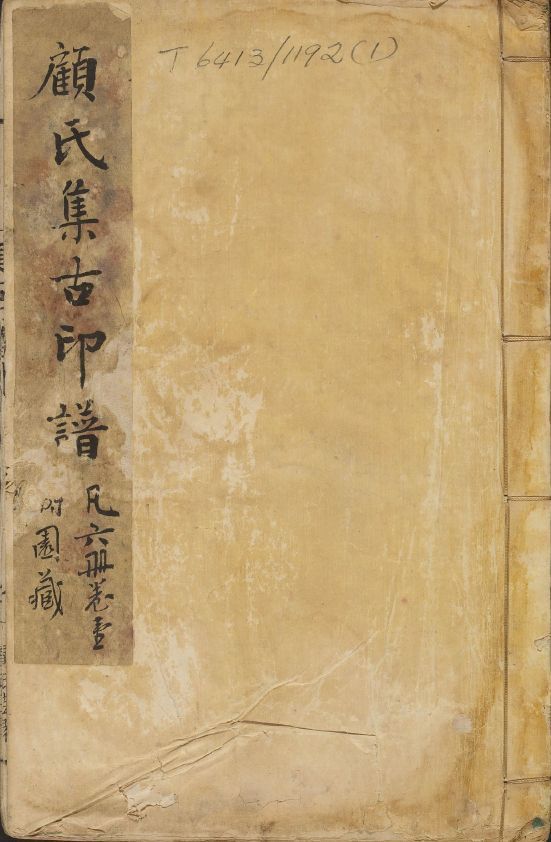 T 6413/1192(1)
顧氏集古印譜
凡六冊卷壹
附園藏